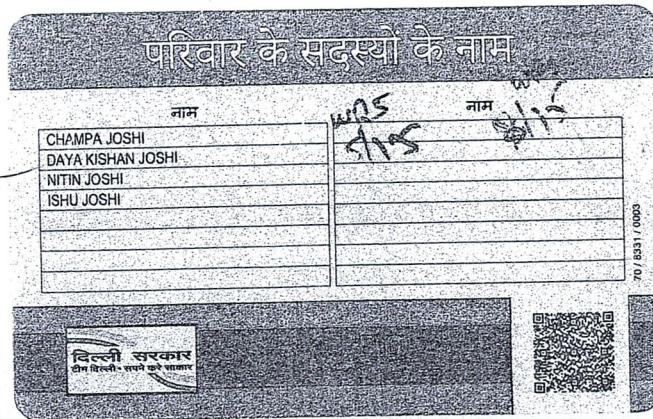 परिवार के सदस्यों के नाम
नाम
नाम
CHAMPA JOSHI
DAYA KISHAN JOSHI
NITIN JOSHI
ISHU JOSHI
70 / 8331 / 0003
दिल्ली सरकार
टीम दिल्ली • सपने करे साकार